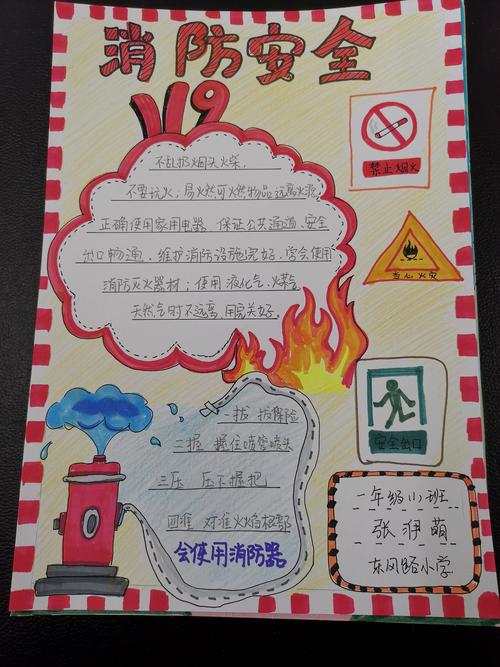 消防安全
119
不乱扔烟头火柴,
不要玩火,易燃可燃物品远离火源,
正确使用家用电器、保证公共通道、安全
出口畅通、维护消防设施完好、学会使用
消防灭火器材;使用液化气、煤气
天然气时不远离,用完关好.
禁止烟火
当心火灾
安全出口
一拔 拔保险
二握 握住喷管喷头
三压 压下握把
四准 对准火焰根部
会使用消防器
一年级11班
张伊萌
东风路小学